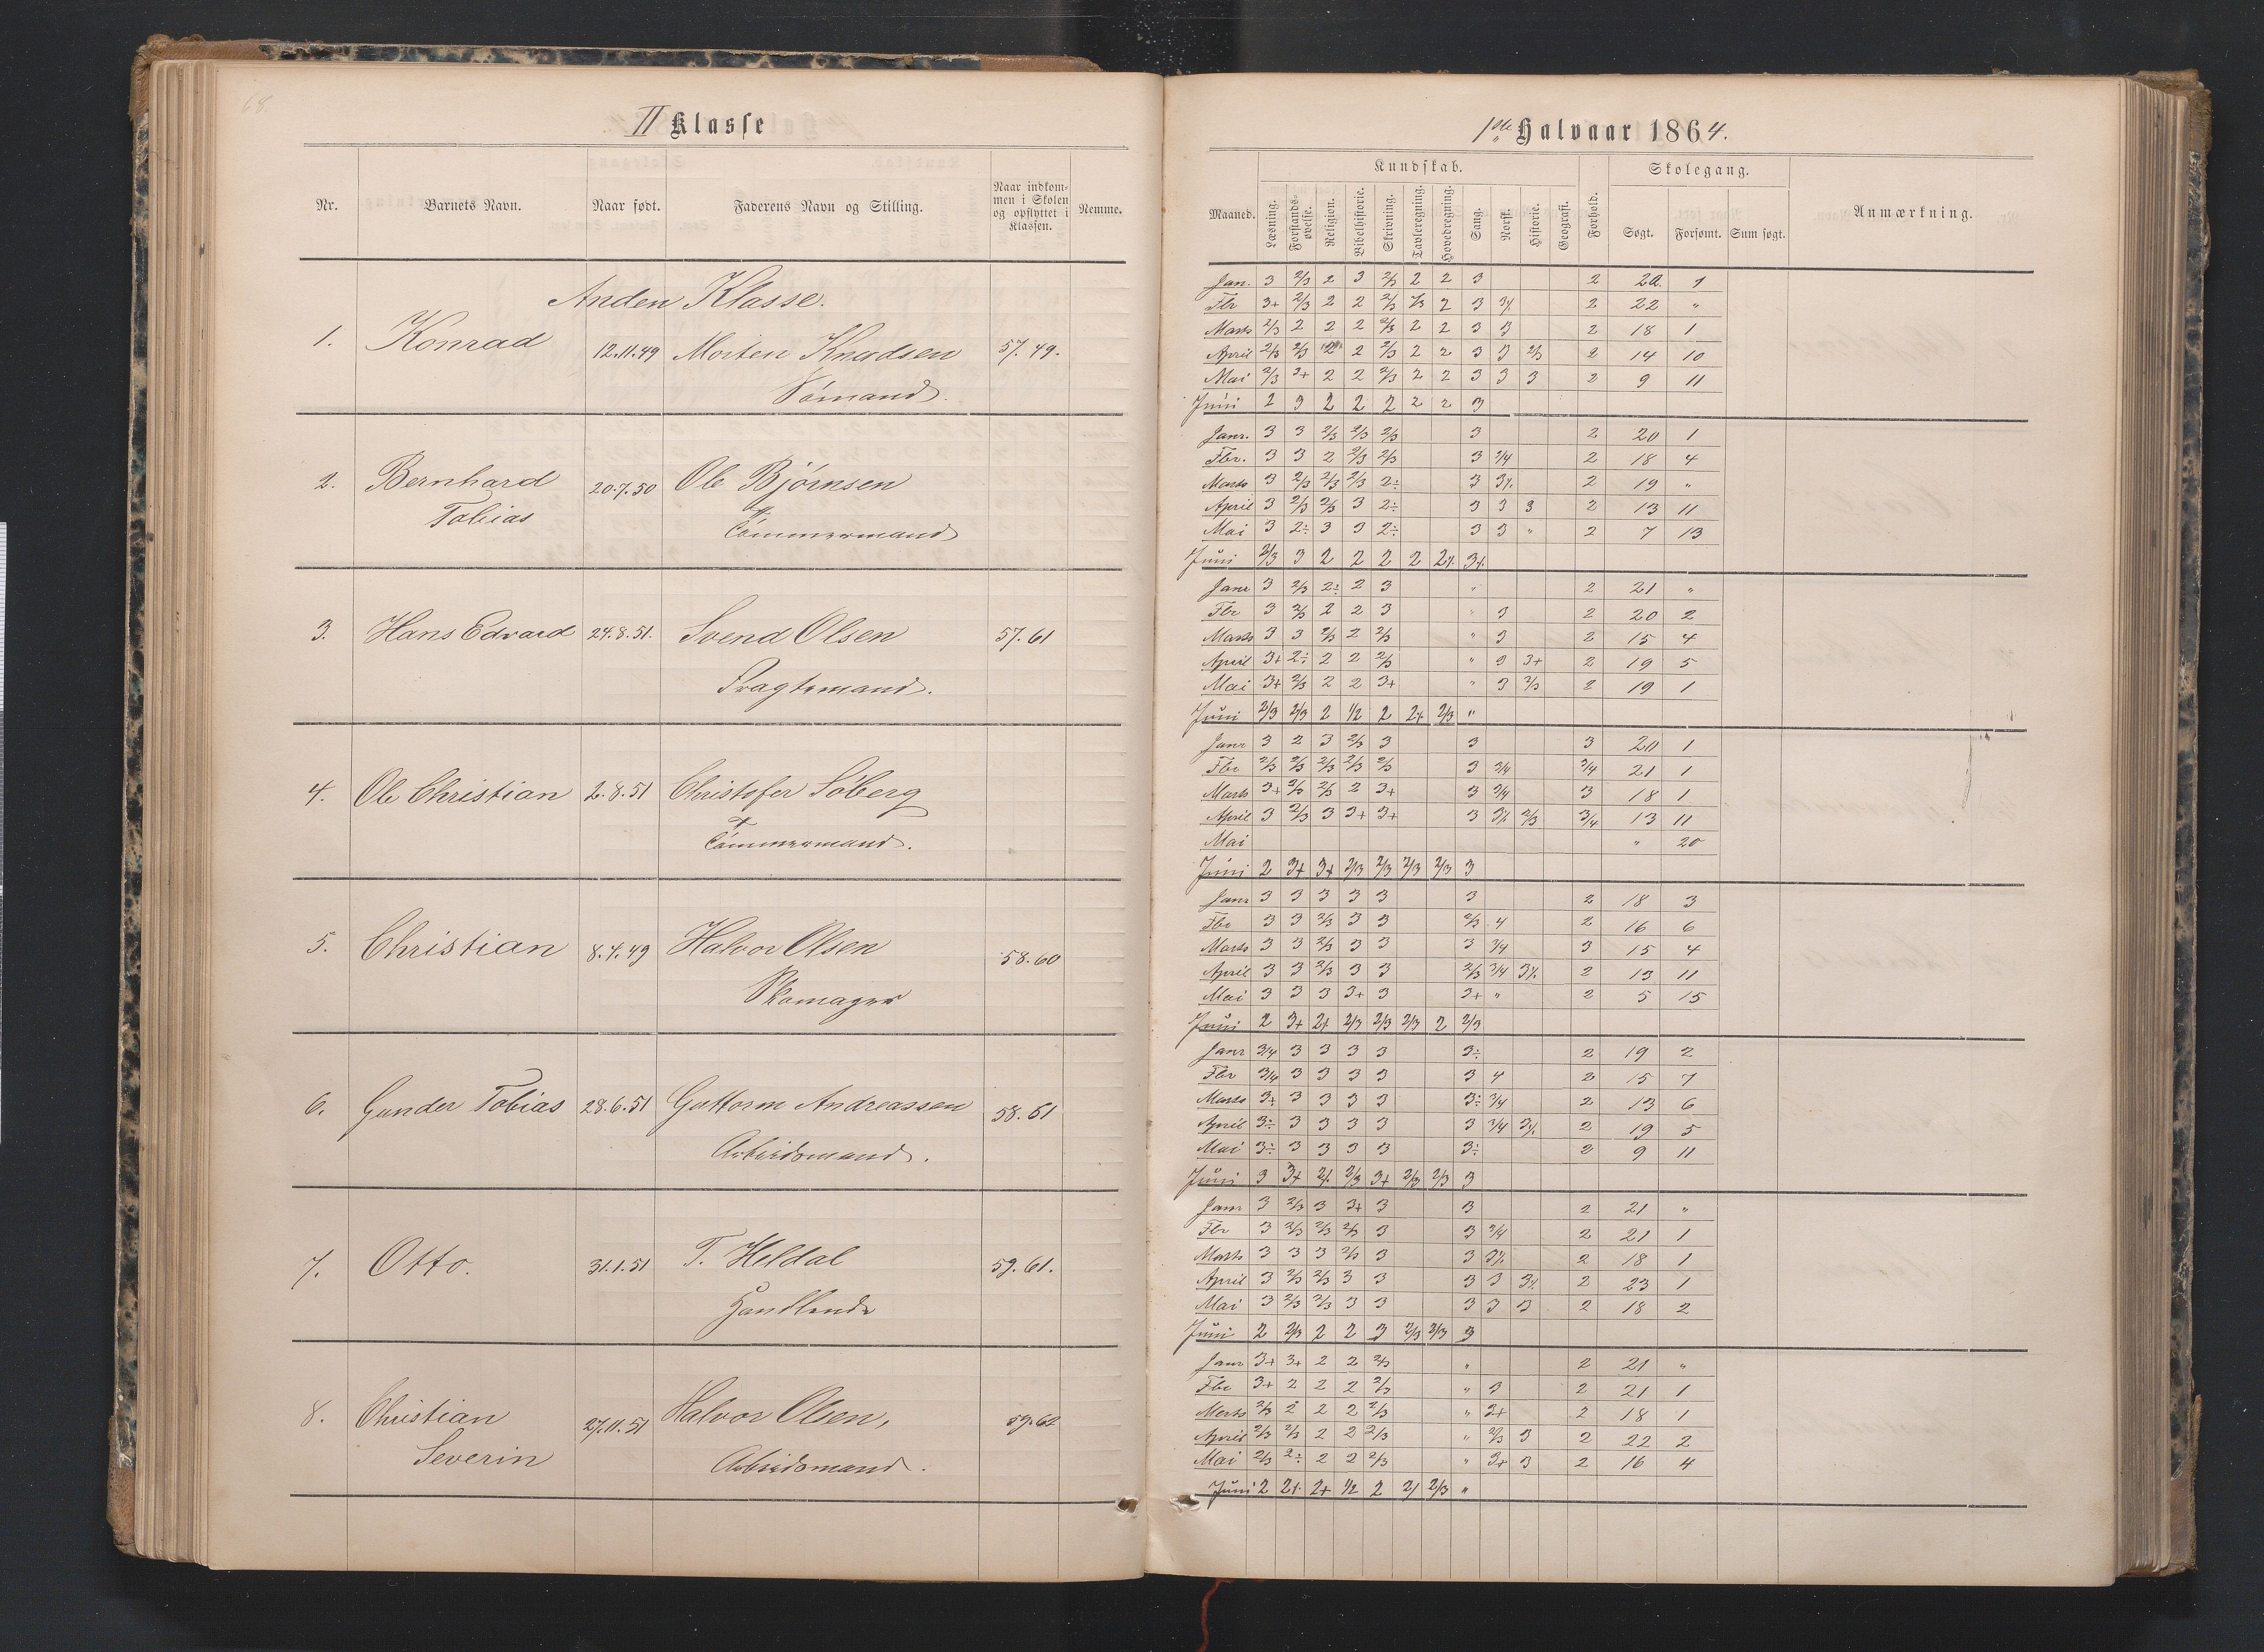 68
II Klasse
Nr. Barnets Navn. Naar født. Faderens Navn og Stilling. Naar indkom-
men i Skolen
og opflyttet i
Klassen. Nemme.
Anden Klasse.
1. Konrad 12.11.49 Morten Knudsen 57.49.
Sømand.
2. Bernhard 20.7.50 Ole Bjørnsen
Tobias Tømmermand
3. Hans Edvard 24.8.51. Svend Olsen 57.61
Fragtemand.
4. Ole Christian 2.8.51 Christofer Søberg
Tømmermand.
5. Christian 8.4.49 Halvor Olsen 58.60
Skomager
6. Gunder Tobias 28.6.51 Guttorm Andreassen 58.61
Arbeidsmand.
7. Otto. 31.1.51 T. Heldal 59.61.
Handlende
8. Christian 27.11.51 Halvor Olsen, 59.62
Severin Arbeidsmand.
1ste Halvaar 1864.
Maaned. Kundskab. Forhold. Skolegang. Anmærkning.
Læsning. Forstands-
øvelse. Religion. Bibelhistorie. Skrivning. Tavleregning. Hovedregning. Sang. Norsk. Historie. Geografi. Søgt. Forsømt. Sum søgt.
Jan. 3 2/3 2 3 2/3 2 2 3 2 22. 1
Fbr 3+ 2/3 2 2 2/3 2/3 2 3 3/. 2 22 "
Marts 2/3 2 2 2 2/3 2 2 3 3 2 18 1
April 2/3 2/3 2 2 2/3 2 2 3 3 2/3 2 14 10
Mai 2/3 3+ 2 2 2/3 2 2 3 3 3 2 9 11
Juni 2 3 2 2 2 2 2 3
Janr. 3 3 2/3 2/3 2/3 3 2 20 1
Fbr. 3 3 2 2/3 2/3 3 3/4 2 18 4
Marts 3 2/3 2/3 2/3 2÷ 3 3/. 2 19 "
April 3 2/3 2/3 3 2÷ 3 3 3 2 13 11
Mai 3 2÷ 3 3 2÷ 3 3 " 2 7 13
Juni 2/3 3 2 2 2 2 2/. 3/.
Janr 3 2/3 2÷ 2 3 " 2 21 "
Fbr 3 2/3 2 2 3 " 3 2 20 2
Marts 3 3 2/3 2 2/3 " 3 2 15 4
April 3+ 2÷ 2 2 2/3 " 3 3+ 2 19 5
Mai 3+ 2/3 2 2 3+ " 3 2/3 2 19 1
Juni 2/3 2/3 2 1/2 2 2/. 2/3 "
Janr 3 2 3 2/3 3 3 3 20 1
Fbr 2/3 2/3 2/3 2/3 2/3 3 3/4 3/4 21 1
Marts 3+ 2/3 2/3 2 3+ 3 3/4 3 18 1
April 3 2/3 3 3+ 3+ 3 3/. 2/3 3/4 13 11
Mai " 20
Juni 2 3+ 3+ 2/3 2/3 2/3 2/3 3
Janr 3 3 3 3 3 3 2 18 3
Fbr 3 3 2/3 3 3 2/3 4 2 16 6
Marts 3 3 2/3 3 3 3 3/4 3 15 4
April 3 3 2/3 3 3 2/3 3/4 3/. 2 13 11
Mai 3 3 3 3+ 3 3+ " 2 5 15
Juni 2 3+ 2/. 2/3 2/3 2/3 2 2/3
Janr 3/4 3 3 3 3 3÷ 2 19 2
Fbr 3/4 3 3 3 3 3 4 2 15 7
Marts 3÷ 3 3 3 3 3÷ 3/4 2 13 6
April 3÷ 3 3 3 3 3 3/4 3/. 2 19 5
Mai 3÷ 3 3 3 3 3÷ 2 9 11
Juni 3 3+ 2/. 2/3 3+ 2/3 2/3 3
Janr 3 2/3 3 3+ 3 3 2 21 "
Fbr 3 2/3 2/3 2/3 3 3 3/4 2 21 1
Marts 3 3 3 2/3 3 3 3/. 2 18 1
April 3 2/3 2/3 3 3 3 3 3/. 2 23 1
Mai 3 2/3 2/3 3 3 3 3 3 2 18 2
Juni 2 2/3 2 2 3 2/3 2/3 3
Janr 3+ 3+ 2 2 2/3 " 2 21 "
Fbr 3+ 2 2 2 2/3 " 3 2 21 1
Marts 2/3 2 2 2 2/3 " 3+ 2 18 1
April 2/3 2/3 2 2 2/3 " 2/3 3 2 22 2
Mai 2/3 2÷ 2 2 2/3 " 3+ 3 2 16 4
Juni 2 2/. 2+ 1/2 2 2/ 2/3 "